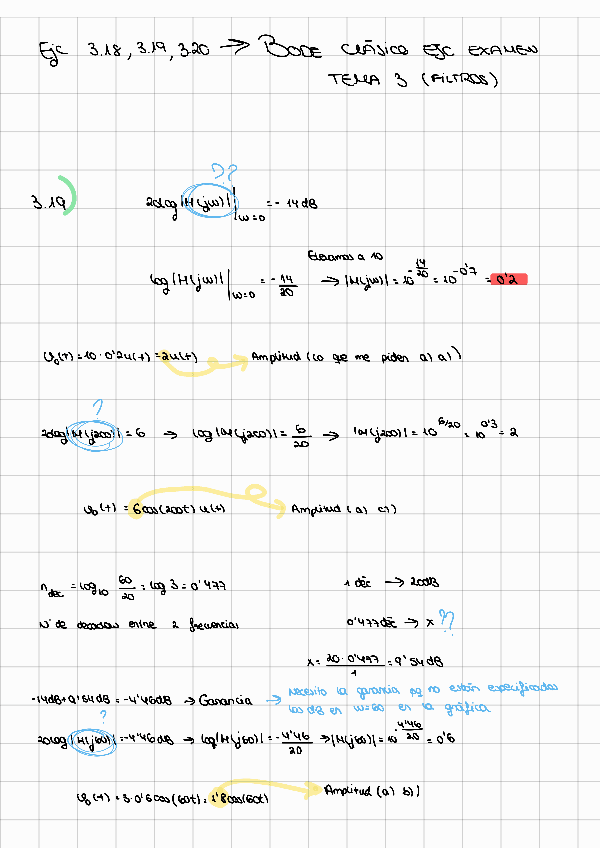 Ejc 3.18, 3.19, 3.20 → BODE CLÁSICO EJC EXAMEN
TEMA 3 (FILTROS)
??
3.19) 20log|H(jω)||ω=0 = -14dB
Elevamos a 10
log|H(jω)||ω=0 = -14/20 → |H(jω)| = 10^(-14/20) = 10^(-0'7) = 0'2
υo(t) = 10·0'2u(t) = 2u(t) → Amplitud (lo que me piden a) a))
?
20log|H(j200)| = 6 → log|H(j200)| = 6/20 → |H(j200)| = 10^(6/20) = 10^(0'3) = 2
υo(t) = 6cos(200t)u(t) → Amplitud (a) c)
n dec = log10 60/20 = log 3 = 0'477
1 dec → 20dB
Nº de décadas entre 2 frecuencias
0'477dec → x ??
x = 20·0'477/1 = 9'54dB
-14dB+9'54dB = -4'46dB → Ganancia → Necesito la ganancia pq no están especificados
los dB en ω=60 en la gráfica
?
20log|H(j60)| = -4'46dB → log|H(j60)| = -4'46/20 → |H(j60)| = 10^(-4'46/20) = 0'6
υo(t) = 3·0'6cos(60t) = 1'8cos(60t) → Amplitud (a) b)